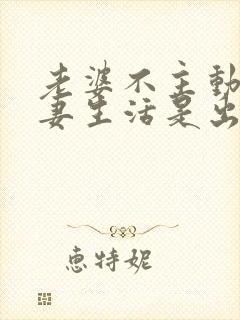 老婆不主动
妻生活是出
惠特妮